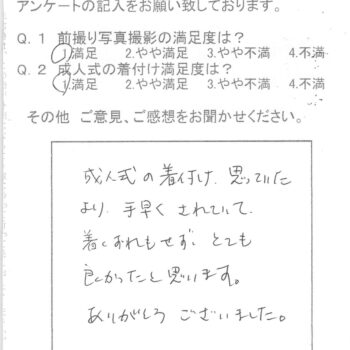 アンケートの記入をお願い致しております。
Q.1 前撮り写真撮影の満足度は？
1.満足 2.やや満足 3.やや不満 4.不満
Q.2 成人式の着付け満足度は？
1.満足 2.やや満足 3.やや不満 4.不満
その他 ご意見、ご感想をお聞かせください。
成人式の着付け、思っていた
より、手早く されていて、
着くずれもせず、とても
良かったと思います。
ありがとう ございました。